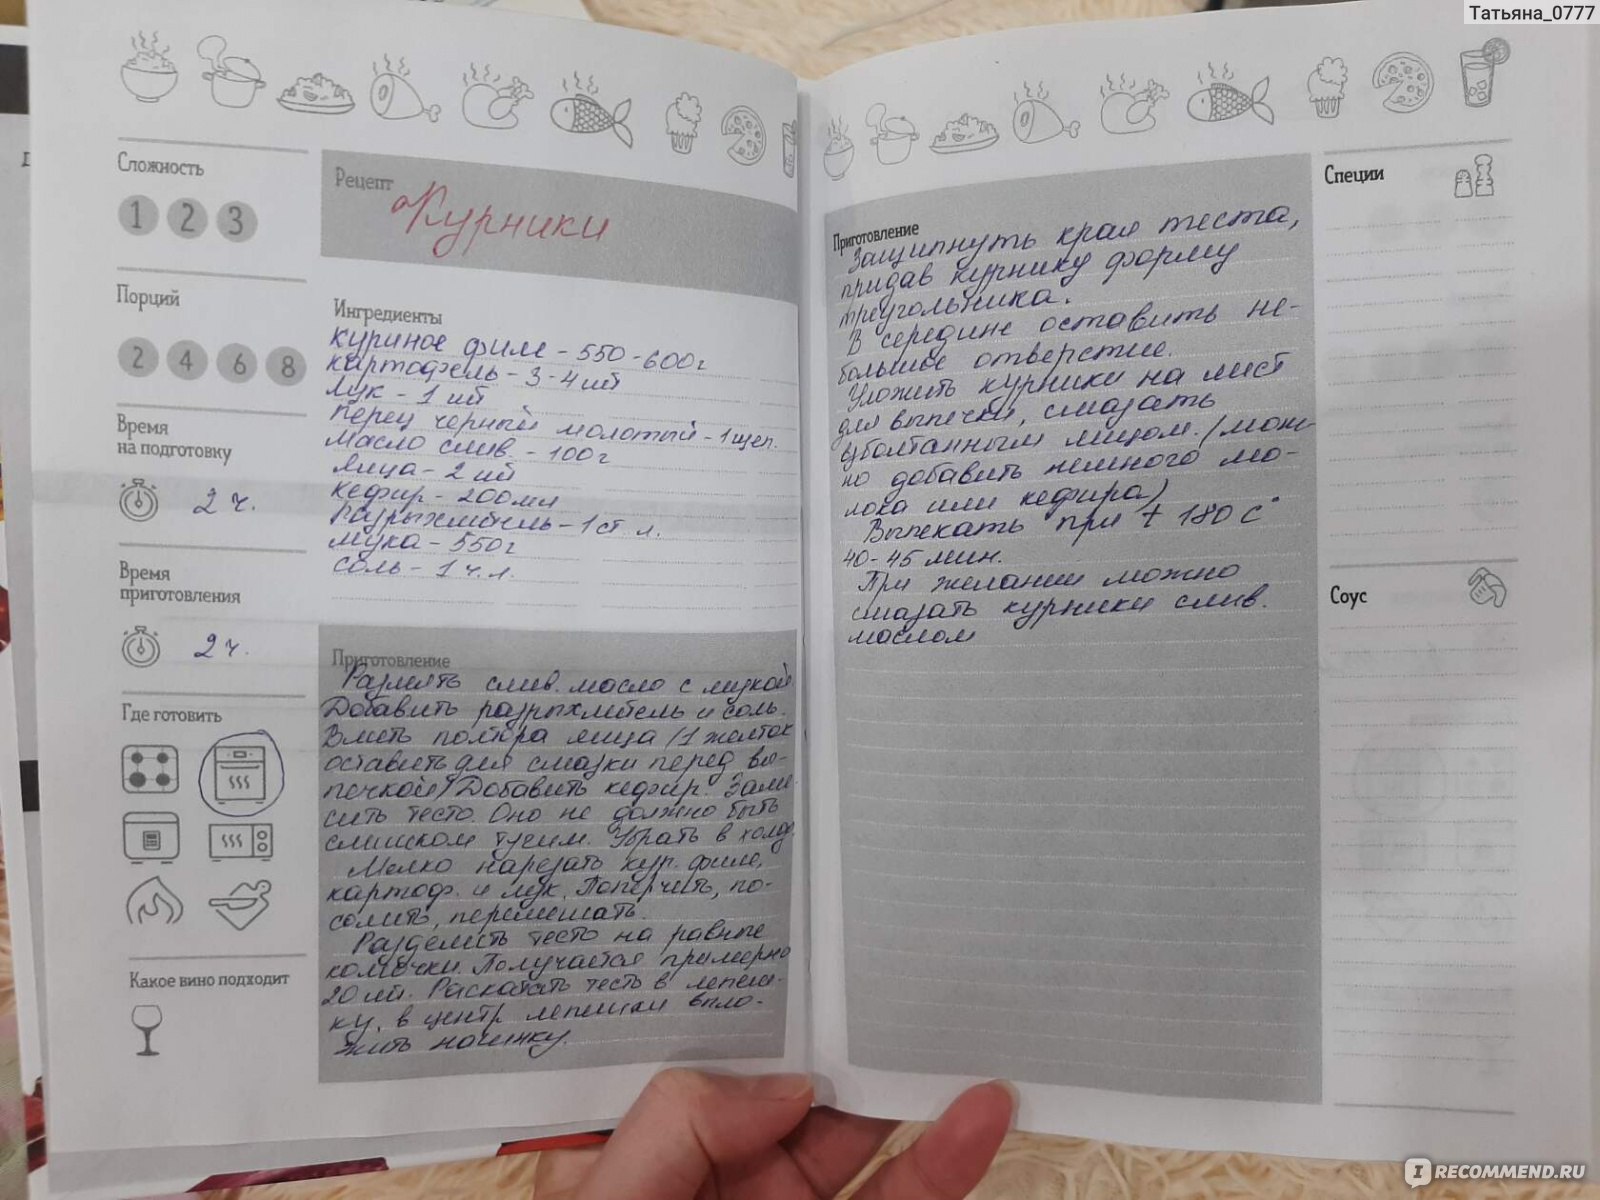 Татьяна_0777
Сложность
1 2 3
Порций
2 4 6 8
Время
на подготовку
2 ч.
Время
приготовления
2 ч.
Где готовить
Какое вино подходит
Рецепт
Курники
Ингредиенты
Куриное филе - 550-600г
картофель - 3-4 шт
лук - 1 шт
перец черный молотый - 1 щеп.
масло слив. - 100г
яйца - 2 шт
кефир - 200мл
разрыхлитель - 1 ст. л.
мука - 550г
соль - 1 ч. л.
Приготовление
Размять слив. масло с мукой
Добавить разрыхлитель и соль.
Влить полтора яйца (1 желток
оставить для смазки перед вы-
печкой) Добавить кефир. Заме-
сить тесто. Оно не должно быть
слишком тугим. Убрать в холод.
Мелко нарезать кур. филе,
картоф. и лук. Поперчить, по-
солить, перемешать.
Разделить тесто на равные
комочки. Получается примерно
20 шт. Раскатать тесто в лепеш-
ку, в центр лепешки вло-
жить начинку.
Приготовление
Защипнуть края теста,
придав курнику форму
треугольника.
В середине оставить не-
большое отверстие.
Уложить курники на лист
для выпечки, смазать
взболтанным яйцом. (мож-
но добавить немного мо-
лока или кефира)
Выпекать при t 180 С°
40-45 мин.
При желании можно
смазать курники слив.
маслом
Специи
Соус
IRECOMMEND.RU